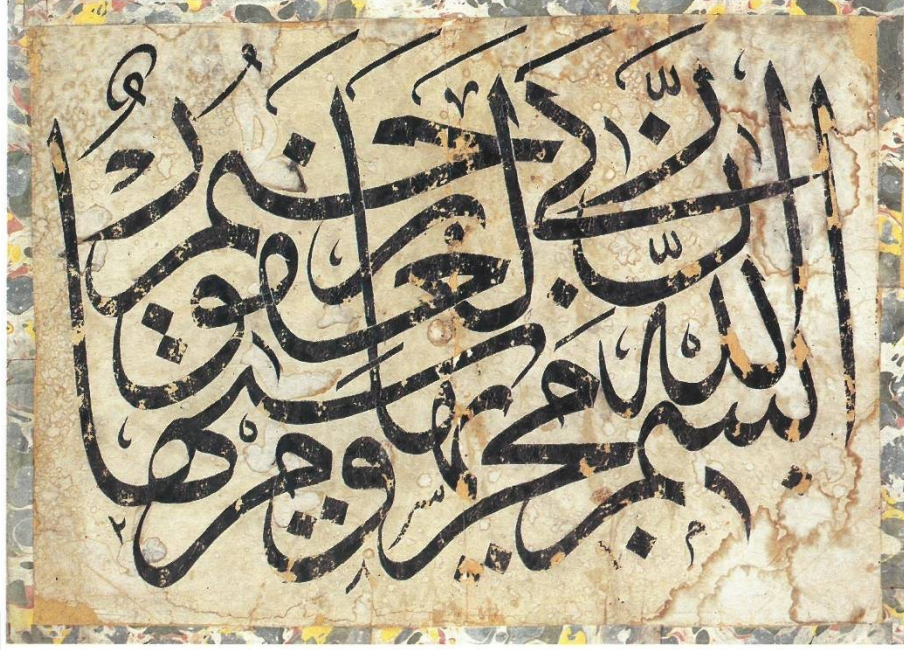 بسم الله مجريها ومرسيها
ان ربي لغفور رحيم